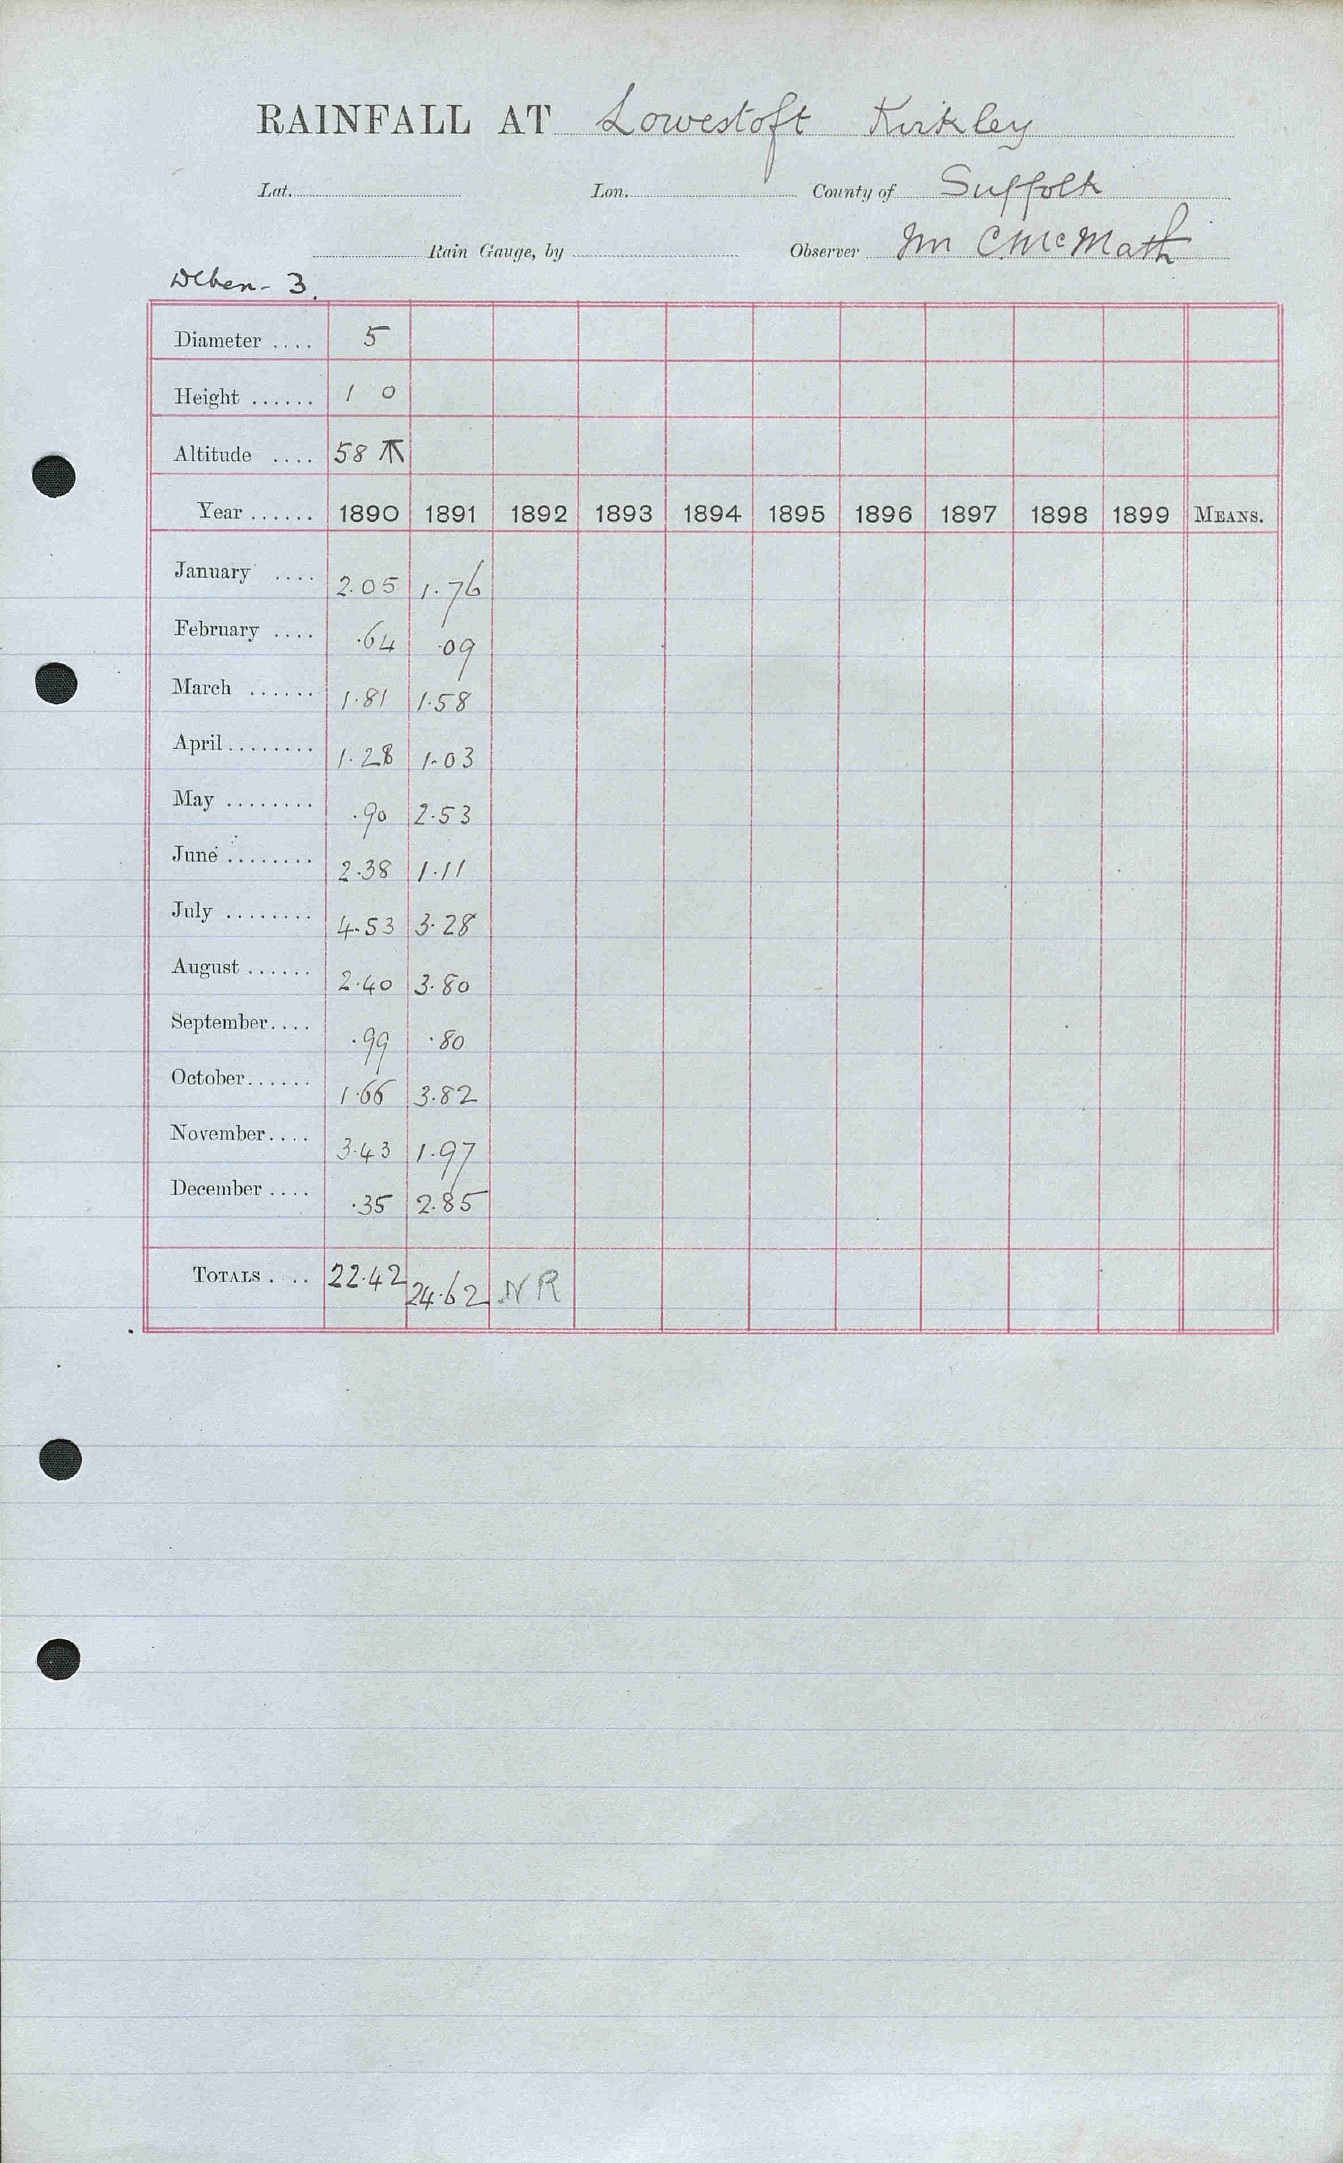 RAINFALL AT Lowestoft Kirkley
Lat. Lon. County of Suffolk
Rain Gauge, by Observer C McMath
Deben - 3.
Diameter .... 5
Height ...... 1 0
Altitude .... 58
Year ...... 1890 1891 1892 1893 1894 1895 1896 1897 1898 1899 MEANS.
January .... 2.05 1.76
February .... .64 .09
March ...... 1.81 1.58
April ........ 1.28 1.03
May ........ .90 2.53
June ........ 2.38 1.11
July ........ 4.53 3.28
August ...... 2.40 3.80
September.... .99 .80
October...... 1.66 3.82
November.... 3.43 1.97
December .... .35 2.85
TOTALS . .. 22.42 24.62 NR